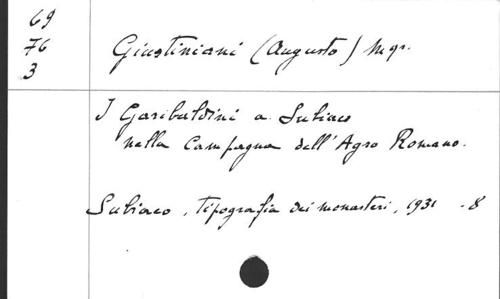 69
76
3
Giustiniani (Augusto) Mgr.
I Garibaldini a Subiaco
nella Campagna dell'Agro Romano.
Subiaco, tipografia dei monasteri, 1931 - 8